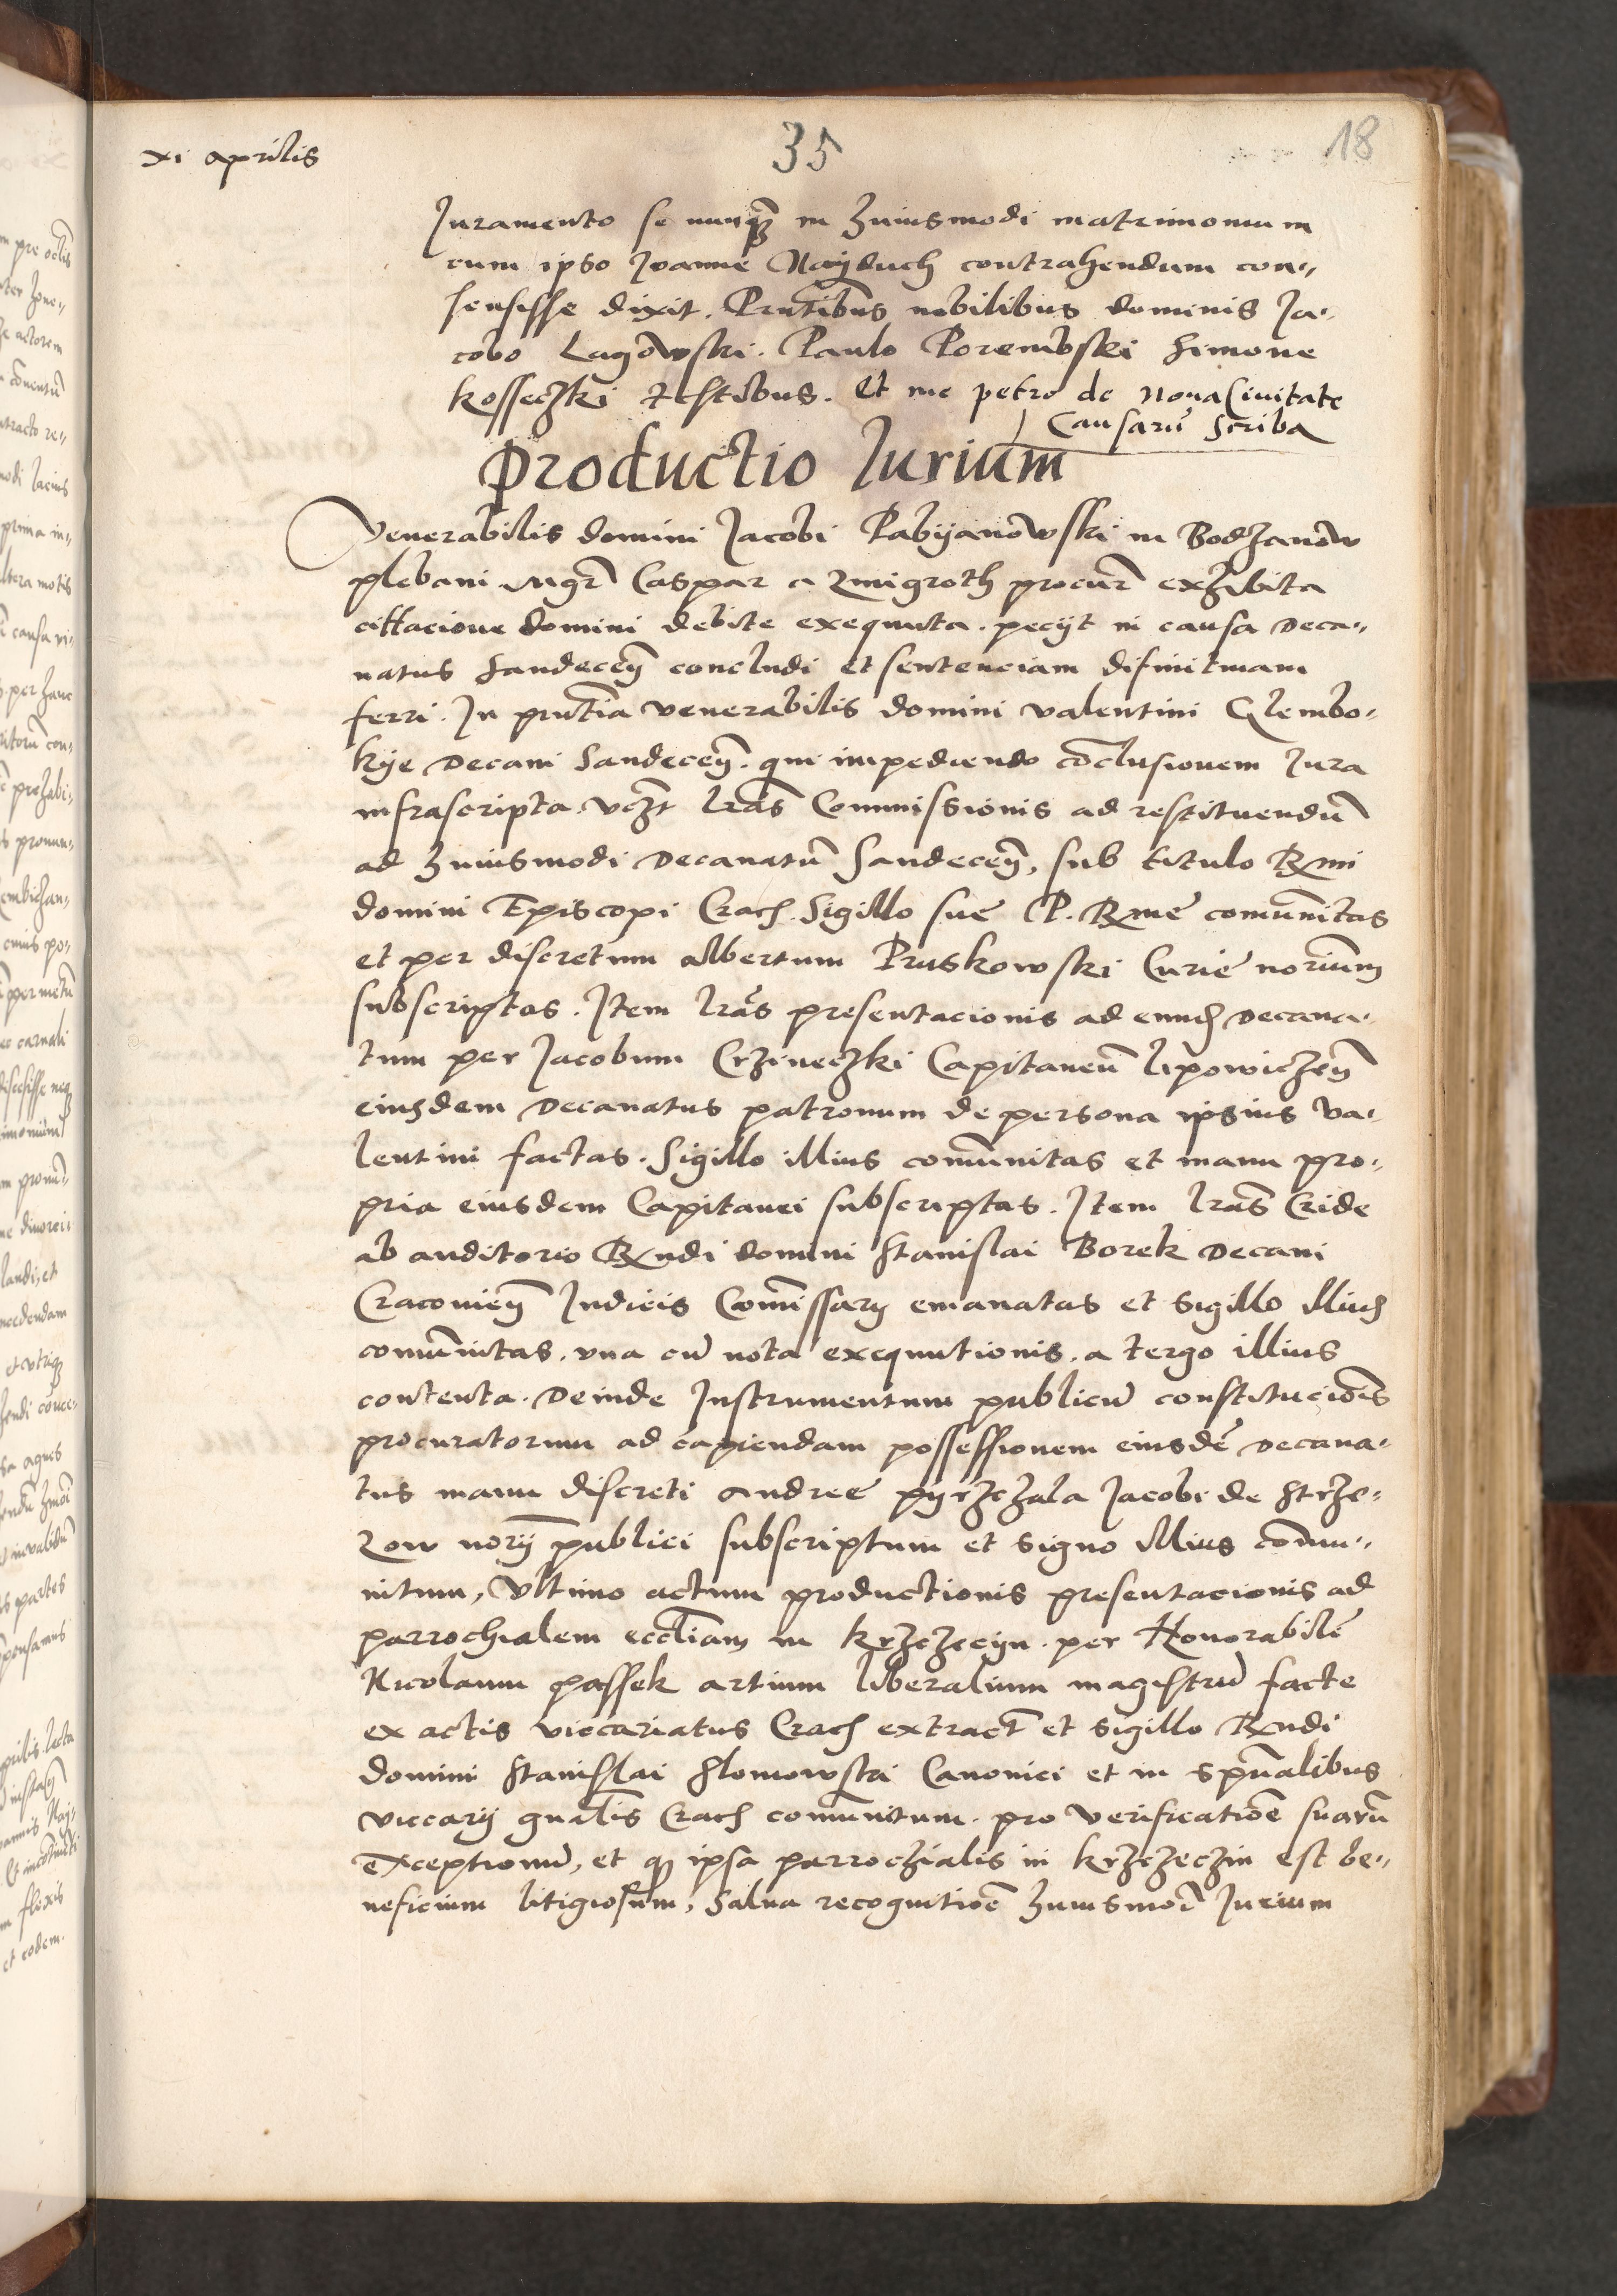 xi aprilis
35
18
Juramento se nunq̃ȝ in huiusmodi matrimonium
cum ipso Joanne Nayduch contrahendum con„
sensisse dixit. Pñtibus nobilibus dominis Ja„
cobo Lagowski. Paulo Porembski Simone
Kosseczki testibus. Et me petro de Noua Ciuitate
Causarũ Scriba
Productio Jurium
Venerabilis domini Jacobi Pabyanowski in Bodzanow
plebani Mgr̃ Caspar a Zmigroth procur̃ exhibita
cittacione domini debite exequuta. pecÿt in causa Deca„
natus Sandeceñ concludi et sentenciam difinitiuam
ferri. In pñtia venerabilis domini Valentini Glembo„
kye Decani Sandeceñ. qui impediendo cõclusionem Jura
infrascripta vczt lr̃as Commissionis ad restituendũ
ad huiusmodi Decanatũ Sandeceñ, sub titulo Rmi
domini Episcopi Crac. Sigillo sue P. Rme comũnitas
et per discretum Albertum Pruskowski Curie norium
subscriptas. Item lr̃as presentacionis ad eund Decana„
tum per Jacobum Crzineczki Capitaneũ lipowiczeñ
eiusdem Decanatus patronum de persona ipsius Va„
lentini factas. Sigillo illius comũnitas et manu pro„
pria eiusdem Capitanei subscriptas. Item lr̃as Cride
ab auditorio Rndi domini Stanislai Borek Decani
Cracouieñ Judicis Comissarÿ emanatas et sigillo illius
comũnitas. vna cũ nota exequutionis. a tergo illius
contenta. Deinde Instrumentum publicũ constitucõis
procuratorum ad capiendam possessionem eiusdẽ Decana„
tus manu discreti Andree pyrzchala Jacobi de Strze„
zow norÿ publici subscriptum et signo illius comu„
nitum, Vltimo actum productionis presentacionis ad
parrochialem eccl̃iam in Krzczecyn. per Honorabilẽ
Nicolaum passek artium liberalium magistrũ facte
ex actis viccariatus Crac extract̃ et sigillo Rndi
domini Stanislai Slomowski Canonici et in sp̃ualibus
viccarÿ gñalis Crac comunitum. pro verificatiõe suarũ
exceptionũ, et q̨ ipsa parrochialis in krzczeczin est be„
neficium litigiosum, Salua recognitiõe huiusmõi Jurium